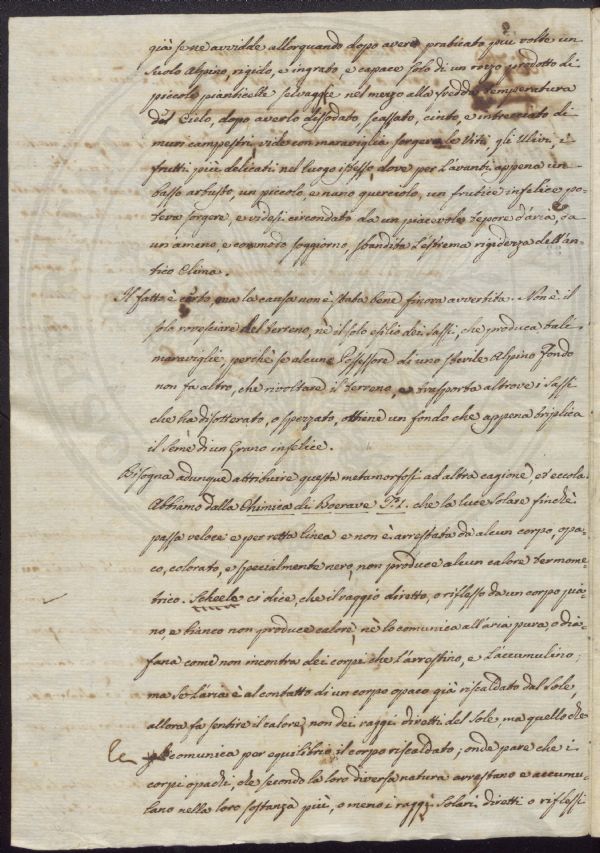 già se ne avvidde allorquando dopo avere praticato più volte un
Suolo Alpino, rigido, e ingrato, e capace solo di un rozo prodotto di
piccole pianticelle selvaggie nel mezzo alla fredda temperatura
del Cielo, dopo averlo dissodato, scassato, cinto, e intrecciato di
muri campestri, vide con maraviglia sorgere le Viti, gli Ulivi, i
frutti più delicati nel luogo istesso dove per l'avanti appena un
basso arbusto, un piccolo, e nano querciolo, un frutice infelice po-
teva sorgere, e videsi circondato da un piacevole tepore d'aria, da
un ameno, e comodo soggiorno, sbandita l'estrema rigidezza dell'an-
tico Clima.
Il fatto è certo, ma la causa non è stata bene finora avvertita. Non è il
solo rovesciare del terreno, nè il solo esilio dei Sassi, che produca tali
maraviglie, perchè se alcuno Possessore di uno sterile Alpino Fondo
non fa altro, che rivoltare il terreno, e trasporta altrove i Sassi
che ha disotterato, o spezzato, ottiene un fondo che appena triplica
il Seme di un Grano infelice.
Bisogna adunque attribuire questa metamorfosi ad altra cagione, ed eccola.
Abbiamo dalla Chimica di Boerave che la luce Solare finchè
passa veloce e per retta linea e non è arrestata da alcun corpo, opa-
co, colorato, e specialmente nero, non produce alcun calore termome-
trico. Scheele ci dice, che il raggio diretto, o riflesso da un corpo pia-
no, e bianco non produce calore, nè lo comunica all'aria pura, o dia-
fana come non incontra dei corpi che l'arrestino, e l'accumulino;
ma se l'aria è al contatto di un corpo opaco già riscaldato dal Sole,
allora fa sentire il calore, non dei raggi diretti del Sole, ma quello che
le comunica per equilibrio il corpo riscaldato; onde pare che i
corpi opachi, che secondo la loro diversa natura arrestano e accumu-
lano nella loro sostanza più, o meno i raggi Solari diretti o riflessi